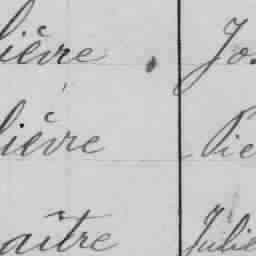 lièvre Jo
lièvre Pie
aître Julie